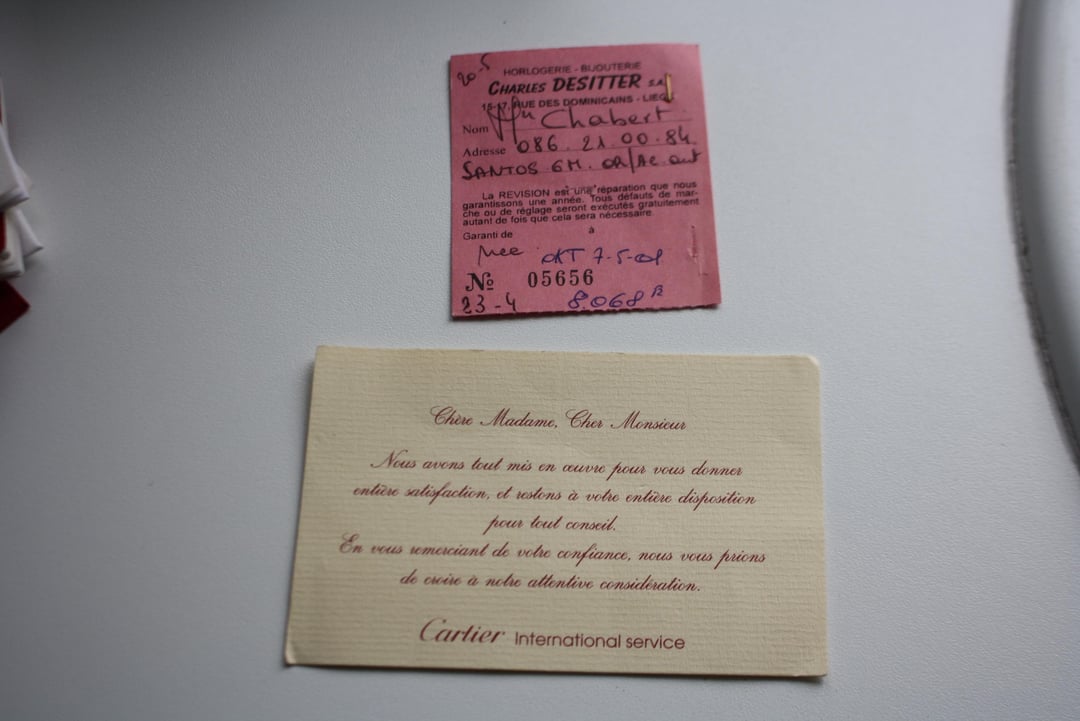 20-5
HORLOGERIE - BIJOUTERIE
CHARLES DESITTER S.A.
15-17, RUE DES DOMINICAINS - LIEGE
Nom Chabert
Adresse 086.21.00.84
SANTOS GM. OR/Ac. aut
La REVISION est une réparation que nous
garantissons une année. Tous défauts de mar-
che ou de réglage seront exécutés gratuitement
autant de fois que cela sera nécessaire.
Garanti de à
7-5-01
No 05656
23-4 8.068
Chère Madame, Cher Monsieur
Nous avons tout mis en œuvre pour vous donner
entière satisfaction, et restons à votre entière disposition
pour tout conseil.
En vous remerciant de votre confiance, nous vous prions
de croire à notre attentive considération.
Cartier International service